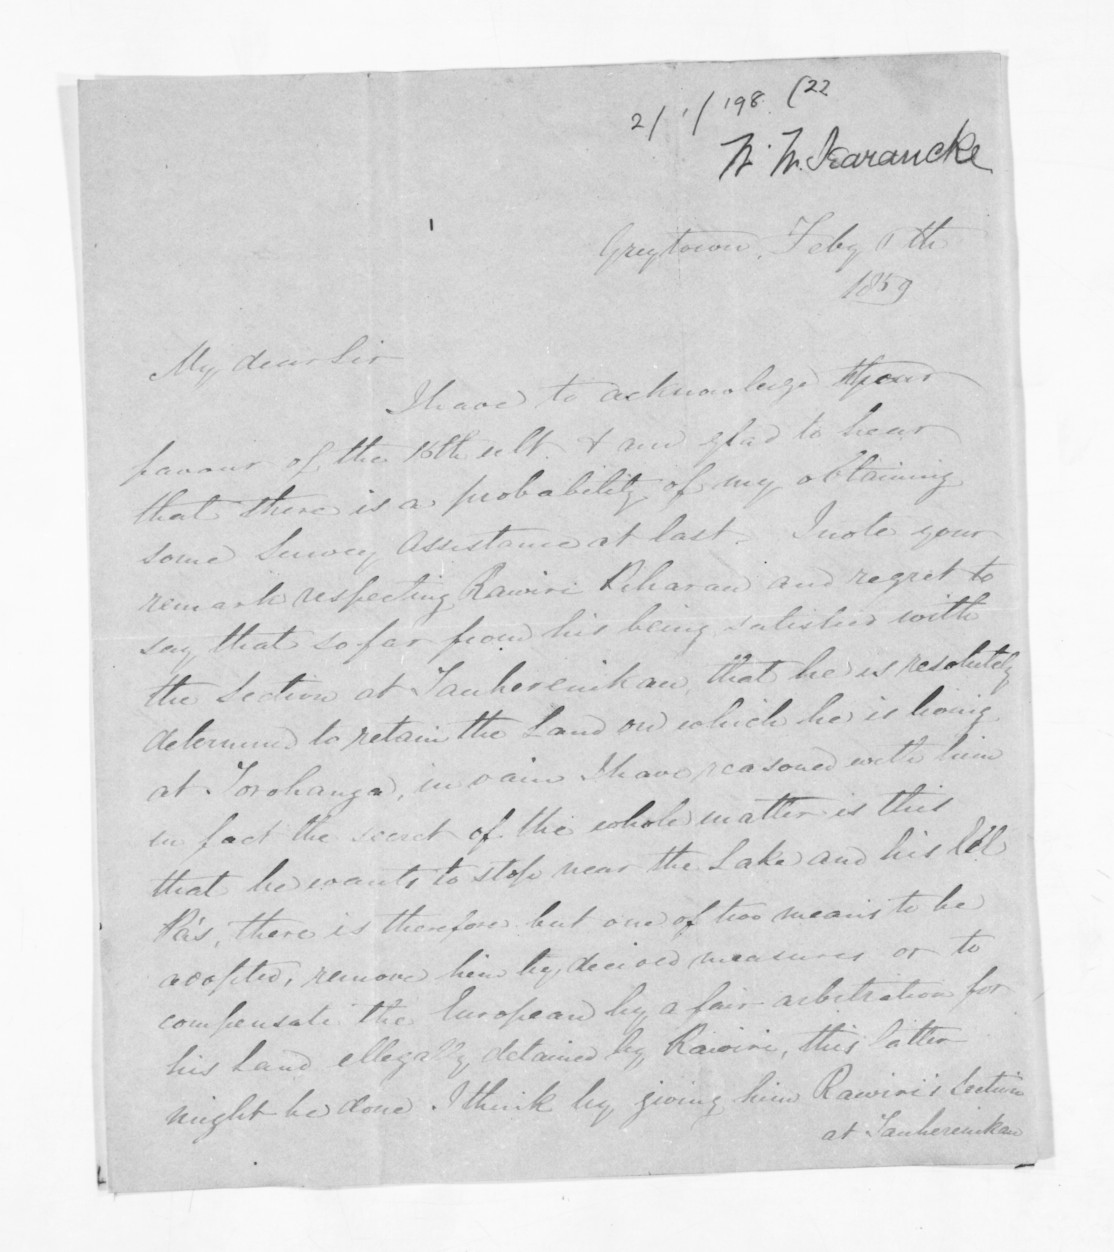 2/1/198. (22
W. N. Searancke
Greytown, Feby th
1859
My dear Sir
I have to acknowledge your
favour of the 16th ult. & am glad to hear
that there is a probability of my obtaining
some Survey Assistance at last. I note your
remark respecting Rawiri and regret to
say that so far from his being satisfied with
the Section at Tauherenikau, that he is resolutely
determined to retain the Land on which he is living
at Torohanga, in vain I have reasoned with him
in fact the secret of the whole matter is this
that he wants to stop near the Lake and his Eel
Pa's, there is therefore but one of two means to be
adopted, remove him by decided measures or to
compensate the European by a fair arbitration for
his Land ellegally detained by Rawiri, this latter
might be done I think by giving him Rawiri's Section
at Tauherenikau